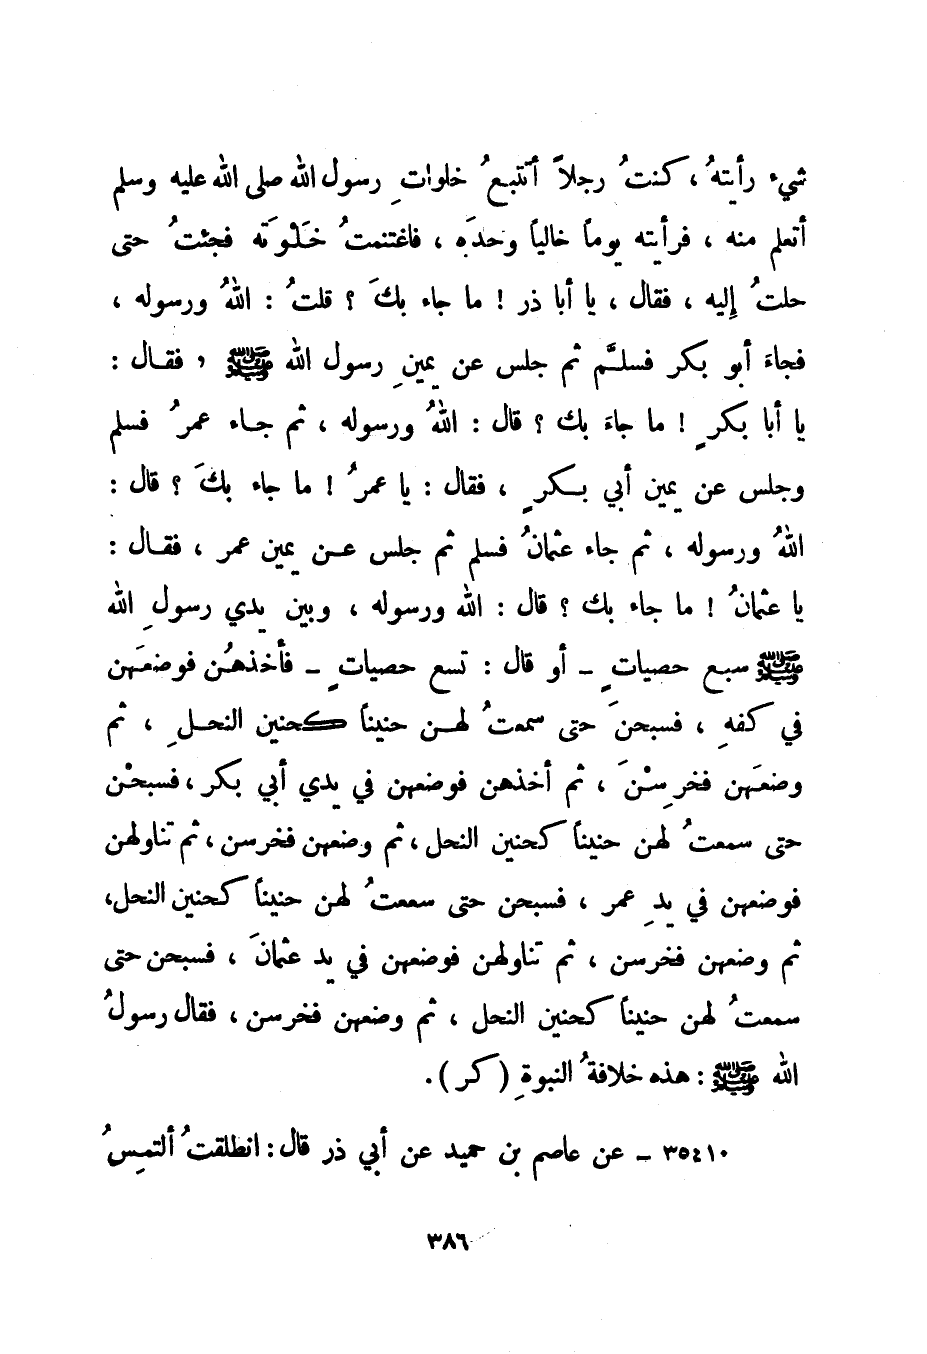 شيء رأيتهُ ، كنتُ رجلاً أتتبعُ خلواتِ رسول الله صلى الله عليه وسلم
أتعلم منه ، فرأيته يوماً خالياً وحدَه ، فاغتنمتُ خَلْوَته فجئتُ حتى
حلتُ إليه ، فقال ، يا أبا ذر ! ما جاء بكَ ؟ قلتُ : اللهُ ورسوله ،
فجاءَ أبو بكر فسلَّم ثم جلس عن يمينِ رسول الله ﷺ ، فقال :
يا أبا بكرٍ ! ما جاءَ بك ؟ قال : اللهُ ورسوله ، ثم جاء عمرُ فسلم
وجلس عن يمين أبي بكرٍ ، فقال : يا عمرُ ! ما جاء بكَ ؟ قال :
اللهُ ورسوله ، ثم جاء عثمانُ فسلم ثم جلس عن يمين عمر ، فقال :
يا عثمانُ ! ما جاء بك ؟ قال : الله ورسوله ، وبين يدي رسولِ الله
ﷺ سبع حصياتٍ - أو قال : تسع حصياتٍ - فأخذهُن فوضعَهن
في كفهِ ، فسبحنَ حتى سمعتُ لهن حنيناً كحنين النحلِ ، ثم
وضعَهن فخرِسْنَ ، ثم أخذهن فوضعهن في يدي أبي بكر ، فسبحْن
حتى سمعتُ لهن حنيناً كحنين النحل ، ثم وضعهن فخرسن ، ثم تناولهن
فوضعهن في يدِ عمر ، فسبحن حتى سمعتُ لهن حنيناً كحنين النحل ،
ثم وضعهن فخرسن ، ثم تناولهن فوضعهن في يد عثمانَ ، فسبحن حتى
سمعتُ لهن حنيناً كحنين النحل ، ثم وضعهن فخرسن ، فقال رسولُ
الله ﷺ : هذه خلافةُ النبوةِ ( كر ) .
٣٥٤١٠ - عن عاصم بن حميد عن أبي ذر قال : انطلقتُ ألتمِسُ
٣٨٦